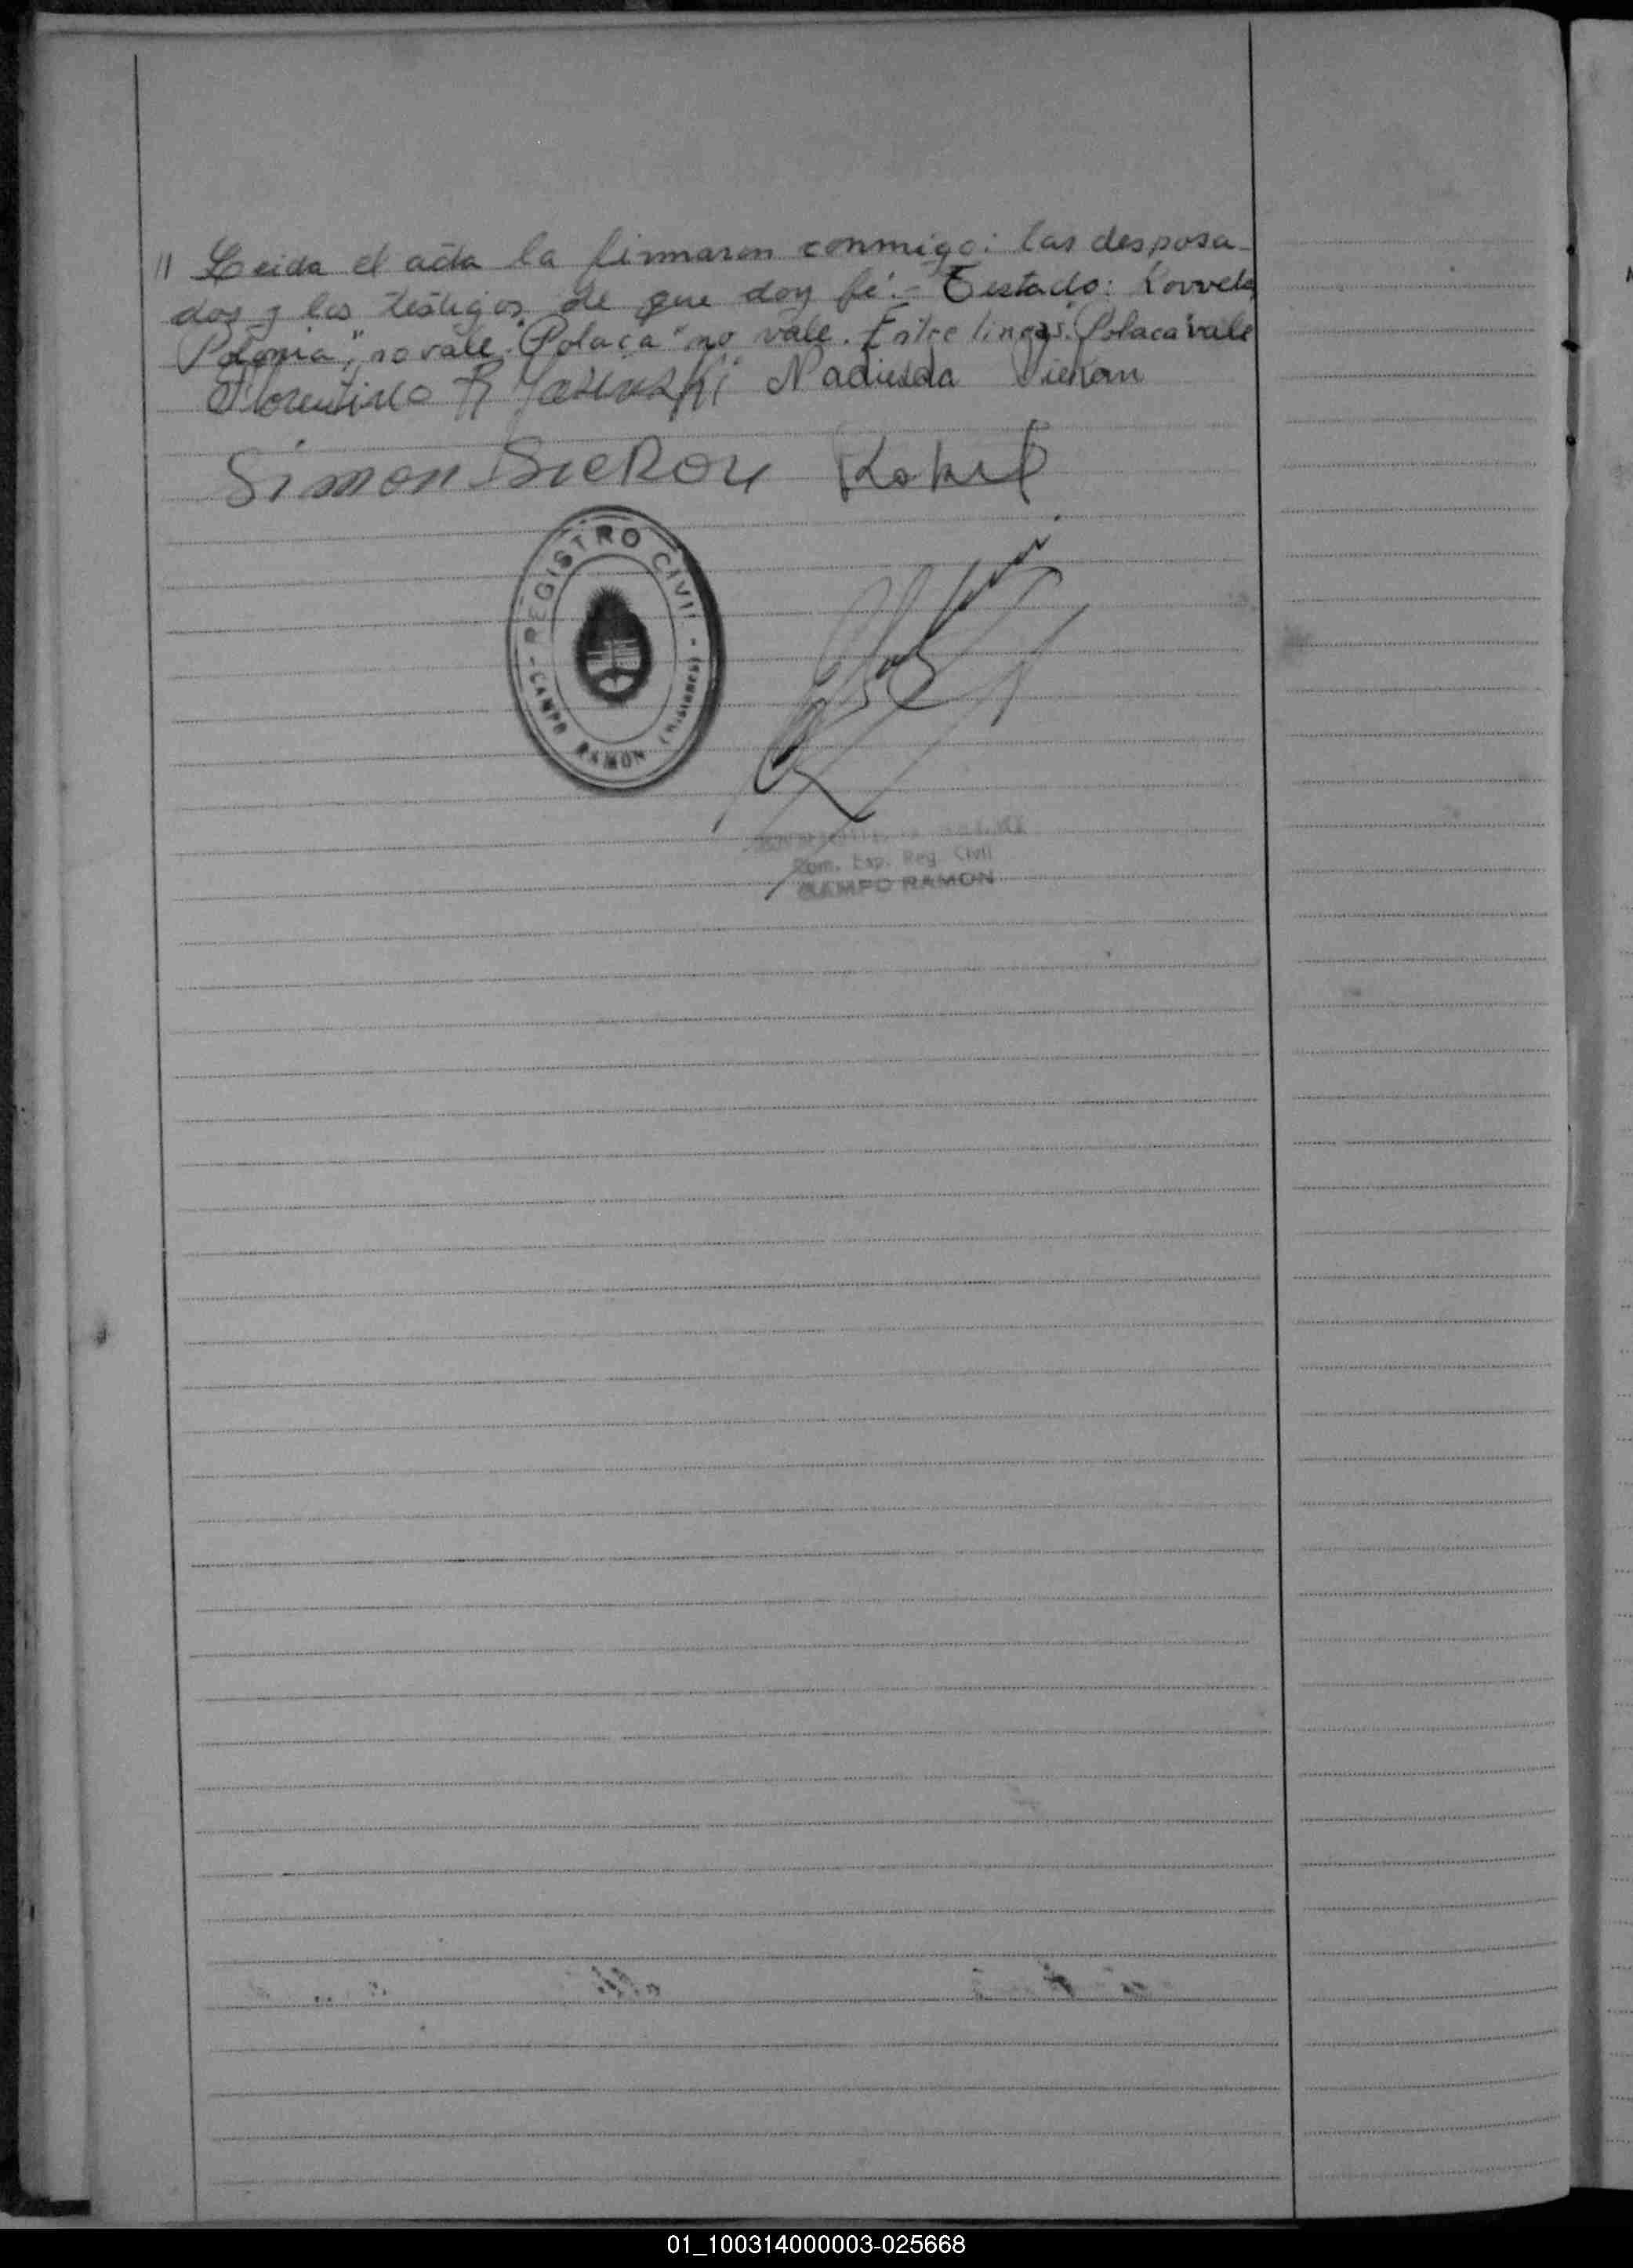 // Leida el acta la firmaron conmigo: los desposa-
dos y los testigos de que doy fé.- Testado:
Polonia", no vale. "Polaca" no vale. Entre lineas: "Polaca" vale
Florentino R Nadiesda
Simon
REGISTRO CIVIL
- CAMPO RAMON (MISIONES) -
Reg. Civil
CAMPO RAMON
01_100314000003-025668